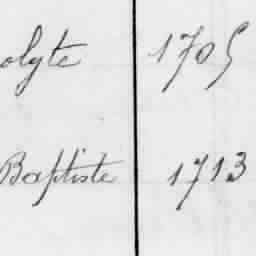 olyte 1705
Baptiste 1713